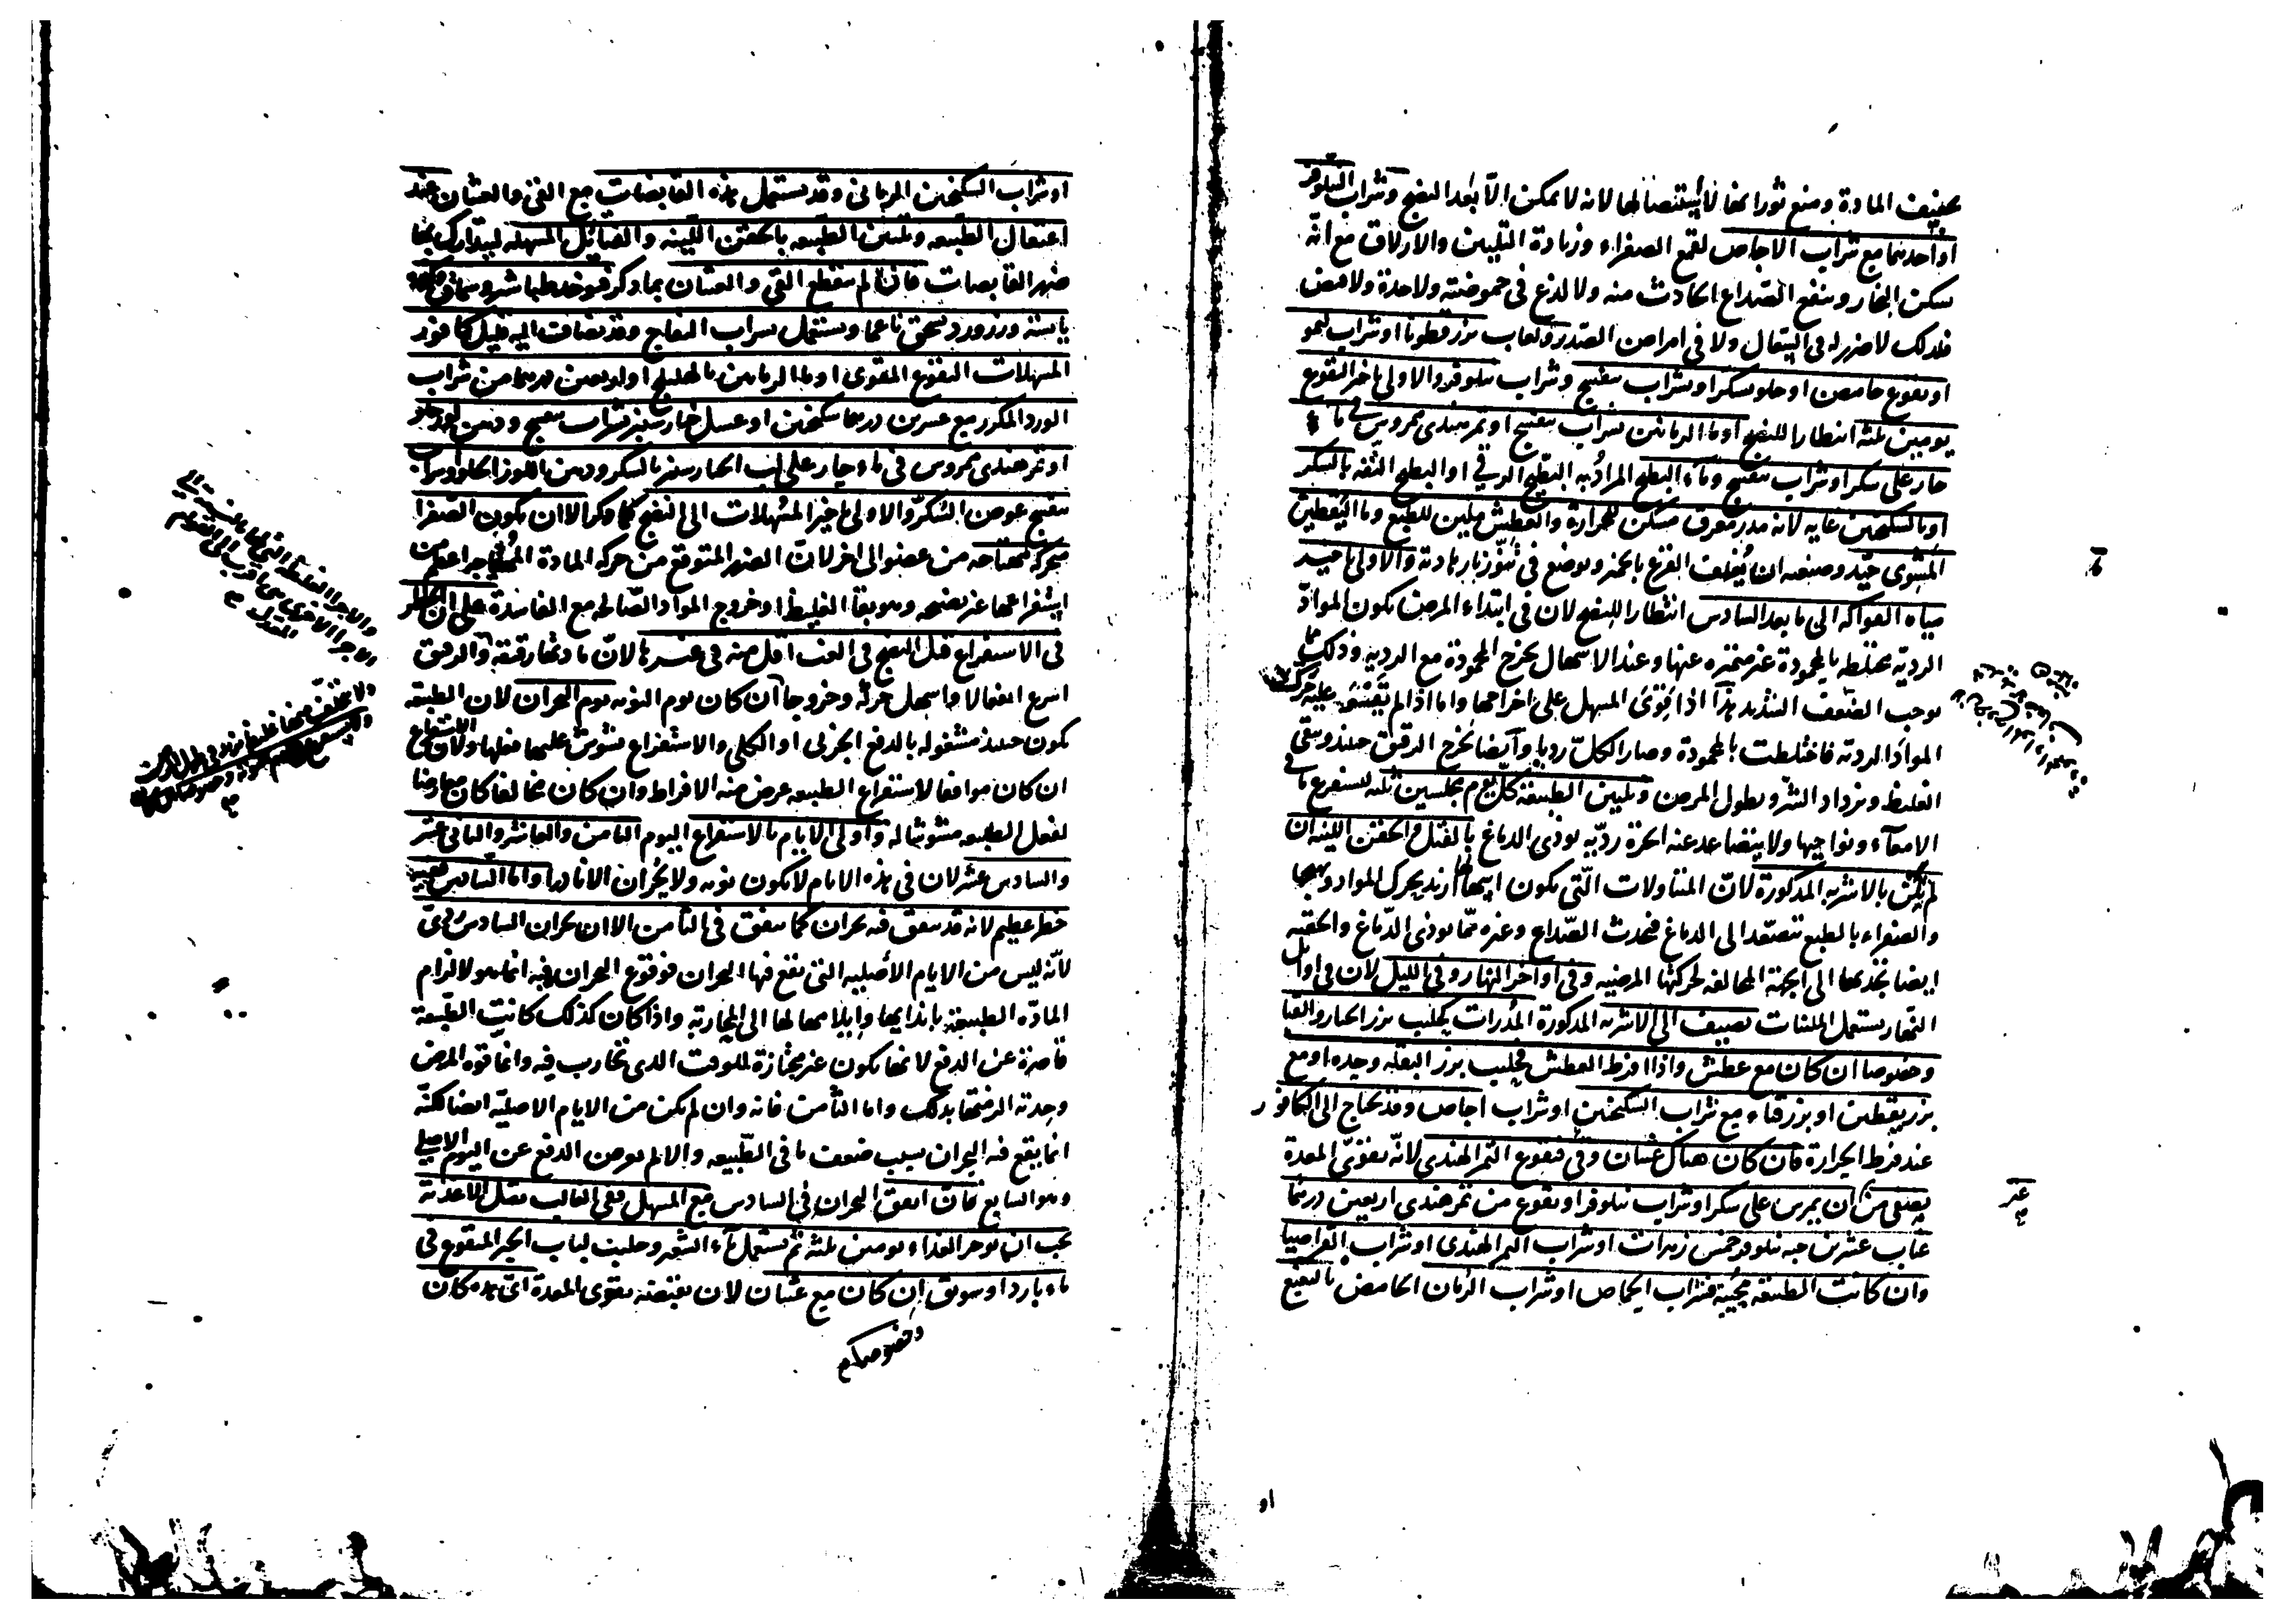 تخفيف المادة ومنع ثورانها لا يستأصلها لانه لا يمكن الا بعد النضج وشراب النيلوفر
او احدهما مع شراب الاجاص لقمع الصفراء وزيادة التليين والازلاق مع انه
سكن البخار وينفع الصداع الحادث منه ولا لذع فى حموضته ولا حدة ولا قبض
فلذلك لا ضرر له فى السعال ولا فى امراض الصدر ولعاب بزرقطونا او شراب ليمو
او نقوع حامض او حلو بسكر او بشراب بنفسج وشراب نيلوفر والاولى تاخير النقوع
يومين ثلثة انتظارا للنضج او ماء الرمانين بشراب بنفسج او تمر هندى ممروس فى ماء
حار على سكر او شراب بنفسج وماء البطيخ المراد به البطيخ الرقى او البطيخ التفه بالسكر
او بالسكنجبين غايه لانه مدر معرق مسكن للحرارة والعطش ملين للطبع وماء اليقطين
المشوى جيد وصنعته ان يغلف القرع بالخمير ويوضع فى تنور نار هادئة والاولى تاخير
مياه الفواكه الى ما بعد السادس انتظارا للنضج لان فى ابتداء المرض يكون المواد
الردية مختلطه بالمحمودة غير متميزه عنها وعند الاسهال يخرج المحمودة مع الرديه وذلك مما
يوجب الضعف الشديد هذا اذا قوى المسهل على اخراجها واما اذا لم يقو عليه حرك
المواد الردية فاختلطت بالمحمودة وصار الكل رديا وايضا يخرج الرقيق حينئذ ويبقى
الغليظ ويزداد الشر ويطول المرض وتليين الطبيعة كل يوم مجلسين ثلثه ليستفرغ ما فى
الامعاء ونواحيها ولا يتصاعد عنه ابخرة رديه يوذى الدماغ بالفتل والحقن اللينه ان
لم يكن بالاشربه المذكورة لان المتناولات التى يكون اسهالها ازيد يحرك المواد ويهيجها
والصفراء بالطبع تتصعد الى الدماغ فيحدث الصداع وغيره مما يوذى الدماغ والحقنه
ايضا تجذبها الى الجهة المخالفه لحركتها المرضيه وفى اواخر النهار وفى الليل لان فى اوايل
النهار يستعمل الملينات تضيف الى الاشربه المذكورة المدرات كحليب بزر الخيار والقثا
وخصوصا ان كان مع عطش واذا افرط العطش فحليب بزر البقله وحده او مع
بزر يقطين او بزر قثاء مع شراب السكنجبين او شراب اجاص وقد يحتاج الى الكافور
عند فرط الحرارة فان كان هناك غثيان وقئ فنقوع التمر الهندى لانه يقوى المعدة
يصفى من ان يمرس على سكر او شراب نيلوفر او نقوع من تمر هندى اربعين درهما
عناب عشرين حبه نيلوفر خمس زهرات او شراب التمر الهندى او شراب القراصيا
وان كانت الطبيعة مجيبة فشراب الحماض او شراب الرمان الحامض بالنعنع
او
او شراب السكنجبين الرمانى وقد يستعمل هذه القابضات مع القئ والغثيان عند
اعتقال الطبيعه وتليين الطبيعه بالحقن اللينه والفتايل المسهله ليتدارك بها
ضرر القابضات فان لم ينقطع القئ والغثيان بما ذكر فيوخذ طباشير وسماق
يابسة وزرورد يسحق ناعما ويستعمل بشراب التفاح وقد يضاف اليه قليل كافور
المسهلات النقوع المقوى او ماء الرمانين بالهليلج او اربعين درهما من شراب
الورد المكرر مع عشرين درهما سكنجبين او عسل خيارشنبر بشراب بنفسج ودهن لوز حلو
او تمر هندى ممروس فى ماء حار على لب الخيارشنبر بالسكر ودهن اللوز الحلو او شراب
بنفسج عوض السكر والاولى تاخير المسهلات الى النضج كما ذكر الا ان يكون الصفرا
متحركة مهتاجه من عضو الى اخر لان الضرر المتوقع من حركة المادة المهتاجه اعظم من
استفراغها غير نضجه وهو بقاء الغليظ او خروج المواد الصالحه مع الفاسدة على ان الخطر
فى الاستفراغ قبل النضج فى الغب اقل منه فى غيرها لان مادتها رقيقة والرقيق
اسرع انفعالا واسهل حركة وخروجا ان كان يوم النوبه يوم البحران لان الطبيعة
تكون حينئذ مشغوله بالدفع الجزئى او الكلى والاستفراغ يشوش عليها فعلها ولان الاستفراغ
ان كان موافقا لاستفراغ الطبيعه عرض منه الافراط وان كان مخالفا كان معارضا
لفعل الطبيعه مشوشا له واولى الايام بالاستفراغ اليوم الثامن والعاشر والثانى عشر
والسادس عشر لان فى هذه الايام لا يكون نوبه ولا بحران الا نادرا واما السادس ففيه
خطر عظيم لانه قد يتفق فيه بحران كما يتفق فى الثامن الا ان بحران السادس ردى
لانه ليس من الايام الاصليه التى يقع فيها البحران فوقوع البحران فيه انما هو لالزام
المادة الطبيعة بايذائها وايلامها لها الى المحاربة واذا كان كذلك كانت الطبيعة
قاصرة عن الدفع لانها تكون غير مختارة للوقت الذى تحارب فيه وانما قوة المرض
وحدته الزمتها بذلك واما الثامن فانه وان لم يكن من الايام الاصلية ايضا لكنه
انما يقع فيه البحران بسبب ضعف ما فى الطبيعه والا لم يعرض الدفع عن اليوم الاصلى
وهو السابع فان اتفق البحران فى السادس مع المسهل ففى الغالب يقتل الاغذية
يجب ان يوخر الغذاء يومين ثلثه ثم يستعمل ماء الشعير وحليب لباب الخبز المنقوع فى
ماء بارد او سويق ان كان مع غثيان لان بقبضه يقوى المعدة اى هذه كان
وخصوصا